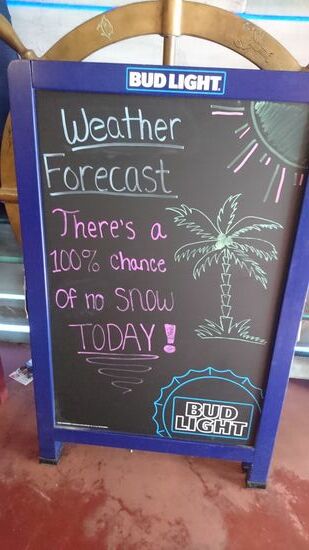 BUD LIGHT
Weather
Forecast
There's a
100% chance
Of no snow
TODAY!
BUD
LIGHT